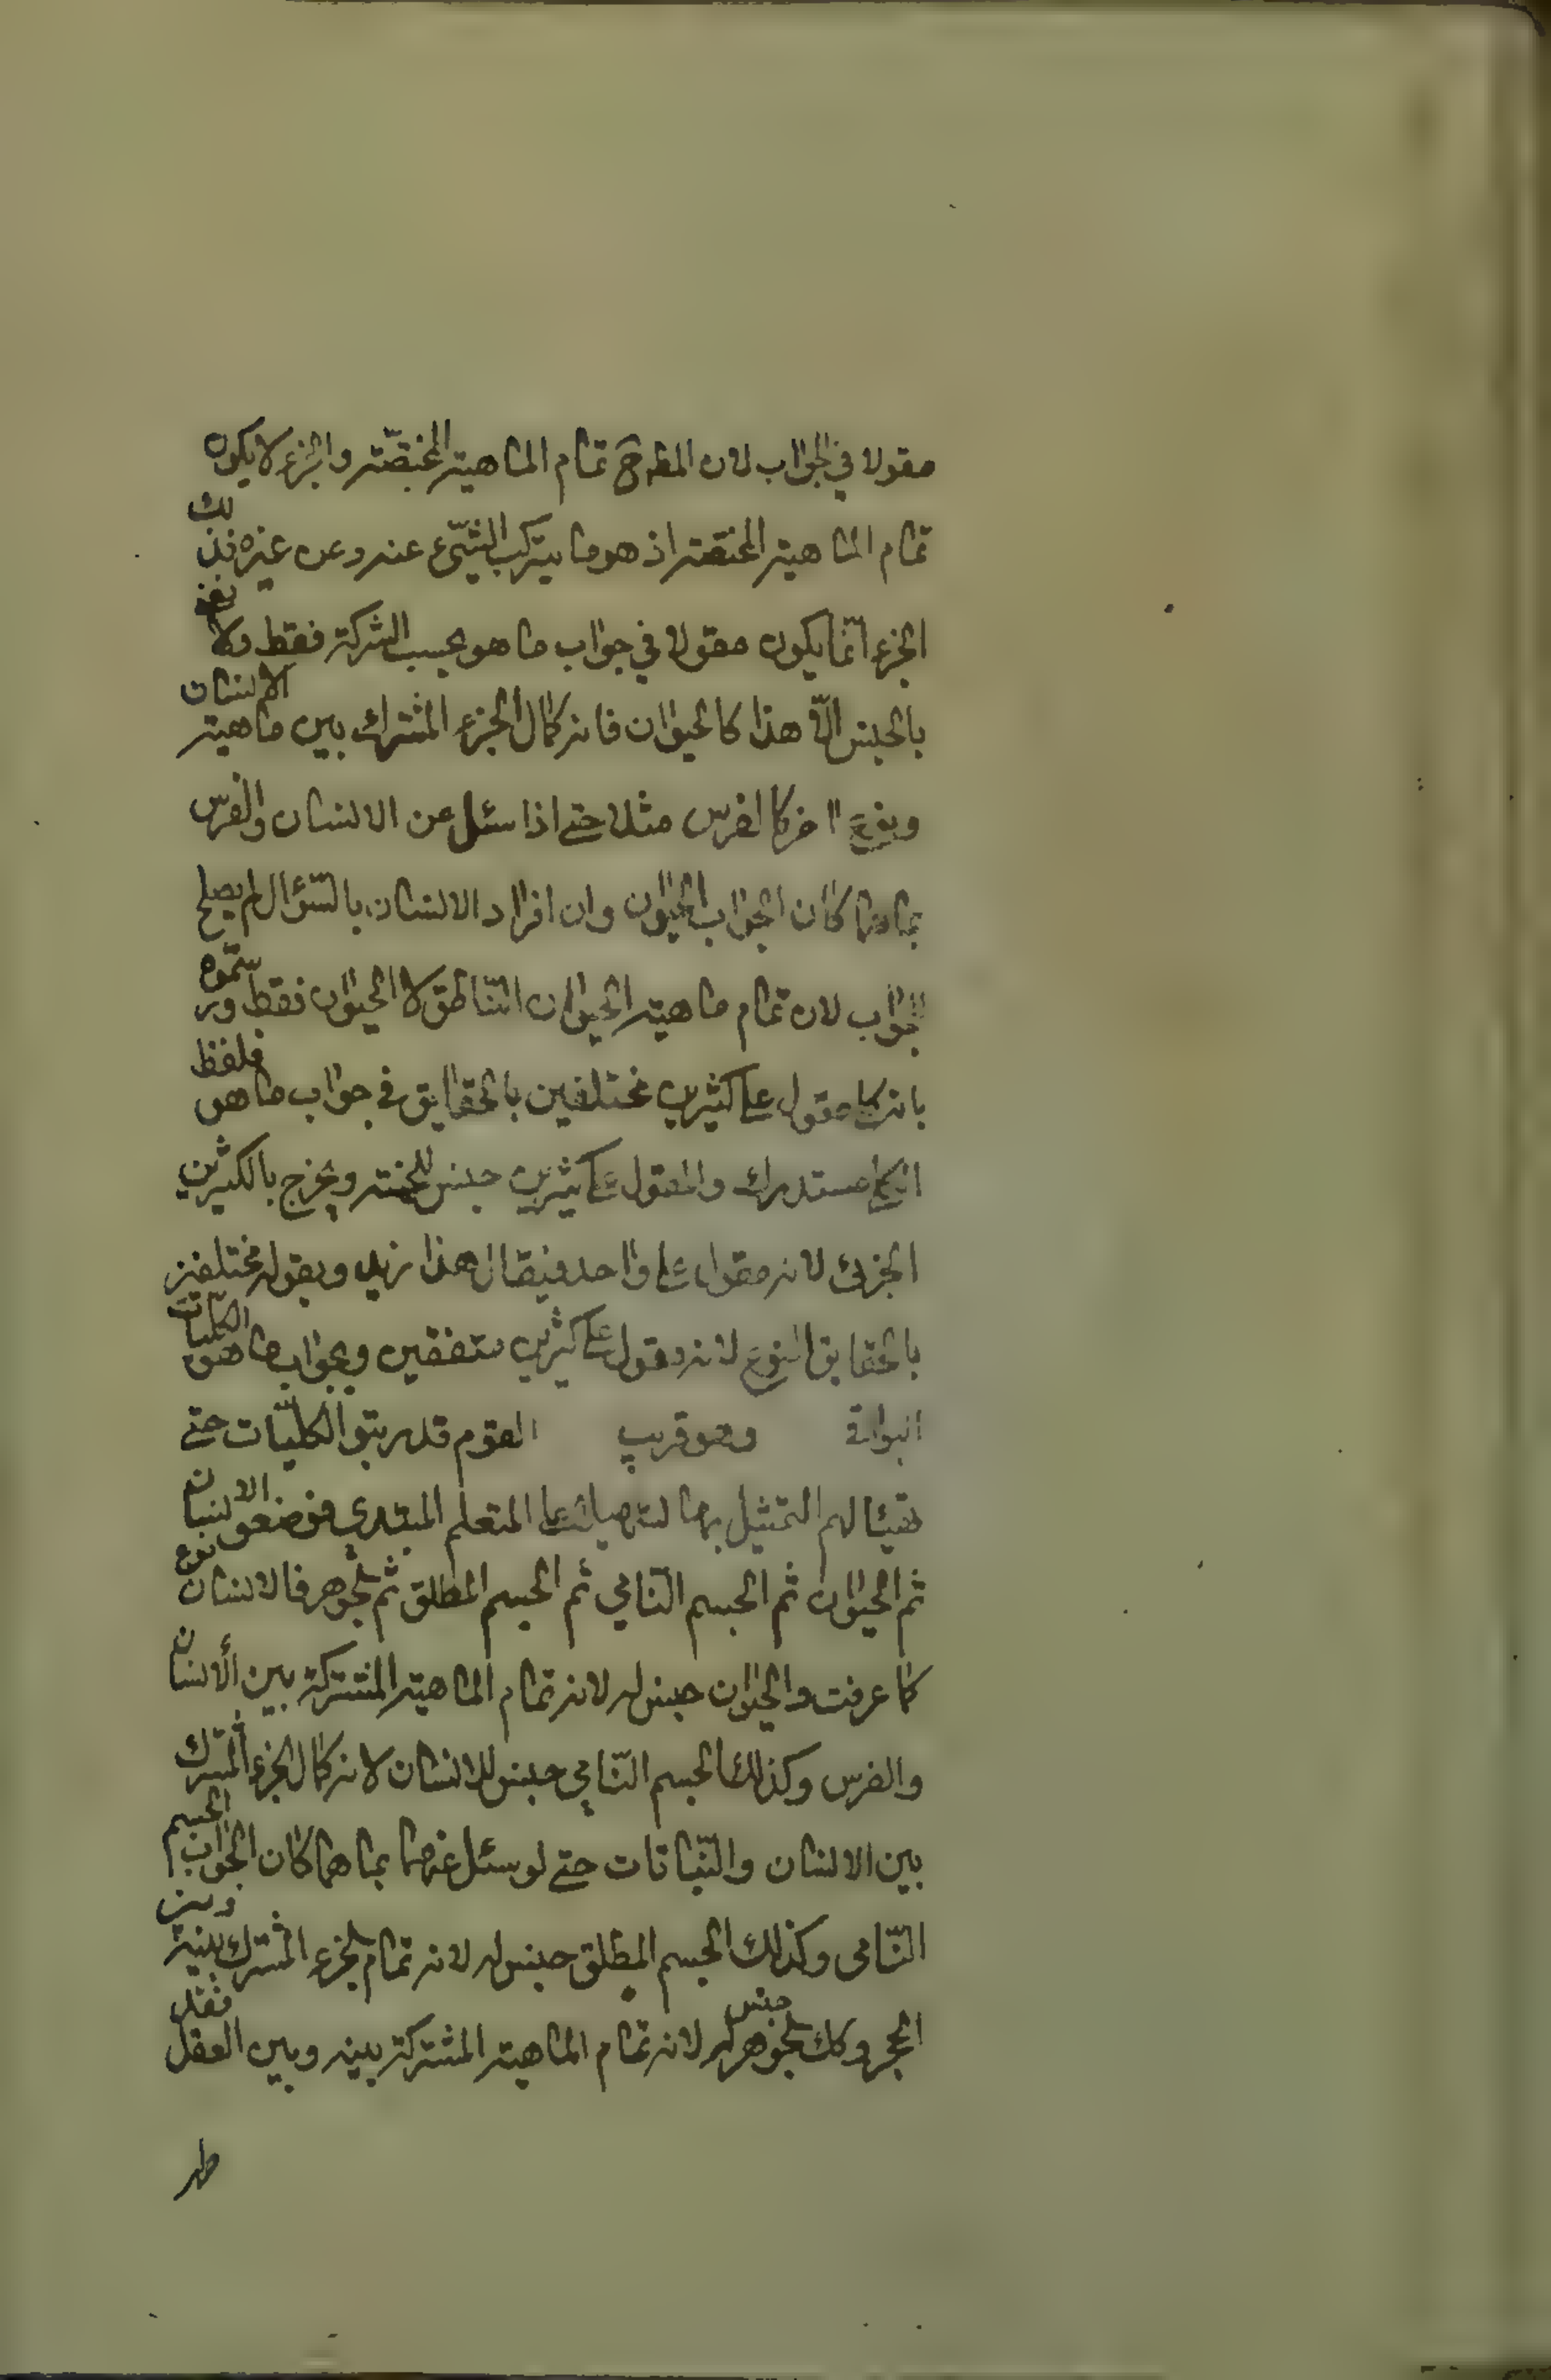 مقولا في الجواب لان المط ح تمام الماهية المختصّة والجزء لا يكون
تمام الماهية المختصة اذ هو ما يتركب الشّيء عنه وعن غيره فذلك
الجزء انّما يكون مقولا في جواب ما هو بحسب الشركة فقط ولا نعني
بالجنس الّا هذا كالحيوان فانه كمال الجزء المشترك بين ماهية الانسان
ونوع اخر كالفرس مثلا حتى اذا سئل عن الانسان والفرس
بما هما كان الجواب الحيوان وان افراد الانسان بالسّؤال لم يصلح
للجواب لان تمام ماهية الحيوان النّاطق لا الحيوان فقط ورسّموه
بانه كلي مقول على كثيرين مختلفين بالحقايق في جواب ما هو فلفظ
الكلي مستدرك والمقول على كثيرين جنس للخمسة ويخرج بالكثيرين
الجزئي لانه مقول على واحد فيقال هذا زيد وبقوله مختلفين
بالحقايق النوع لانه مقول على كثيرين متفقين وبجواب ما هو الكليّات
البواقي وهو قريب القوم قد رتبوا الكليّات حتى
تهيّا لهم التمثيل بها تسهيلا على المتعلم المبتدي فوضعوا الانسان
ثم الحيوان ثم الجسم النّامي ثم الجسم المطلق ثم الجوهر فالانسان نوع
كما عرفت والحيوان جنس له لانه تمام الماهية المشتركة بين الانسان
والفرس وكذلك الجسم النّامي جنس للانسان لانه كمال الجزء المشترك
بين الانسان والنّباتات حتى لو سئل عنهما بما هما كان الجواب الجسم
النّامي وكذلك الجسم المطلق جنس له لانه تمام الجزء المشترك بينه وبين
الحجر وكك الجوهر جنس له لانه تمام الماهية المشتركة بينه وبين العقل فقد
ظهر